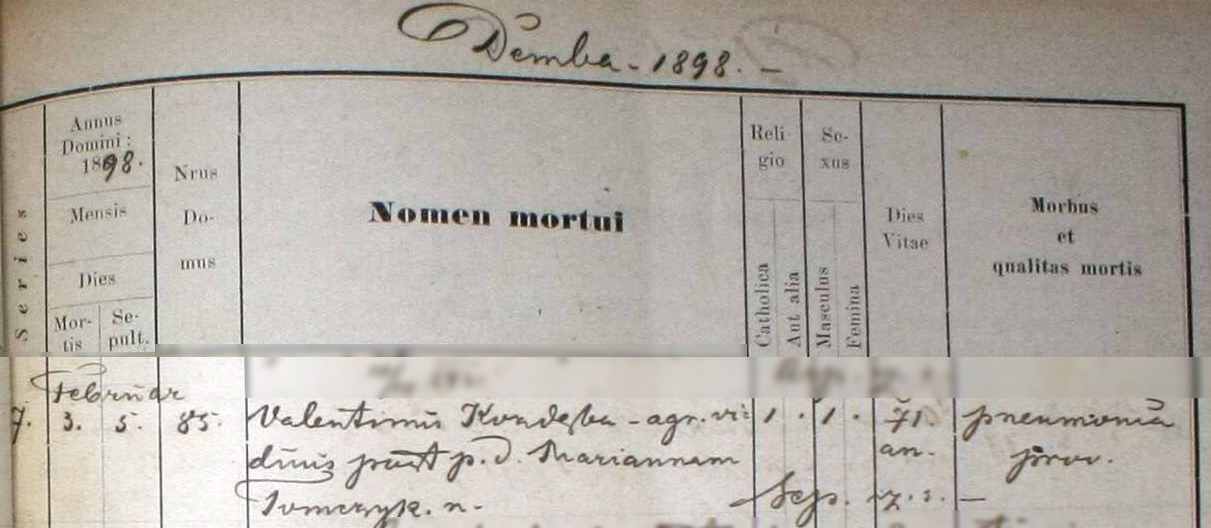 Demba - 1898. -
Series
Annus
Domini:
1898.
Mensis
Dies
Mor-
tis
Se-
pult.
Nrus
Do-
mus
Nomen mortui
Reli-
gio
Catholica
Aut alia
Se-
xus
Masculus
Femina
Dies
Vitae
Morbus
et
qualitas mortis
Februar
7. 3. 5. 85. Valentinus agr. vi= 1 . 1 . 71. pneumonia
duus post p. d. Mariannam an. prov.
Tomczyk. n. Sep. z. s. -